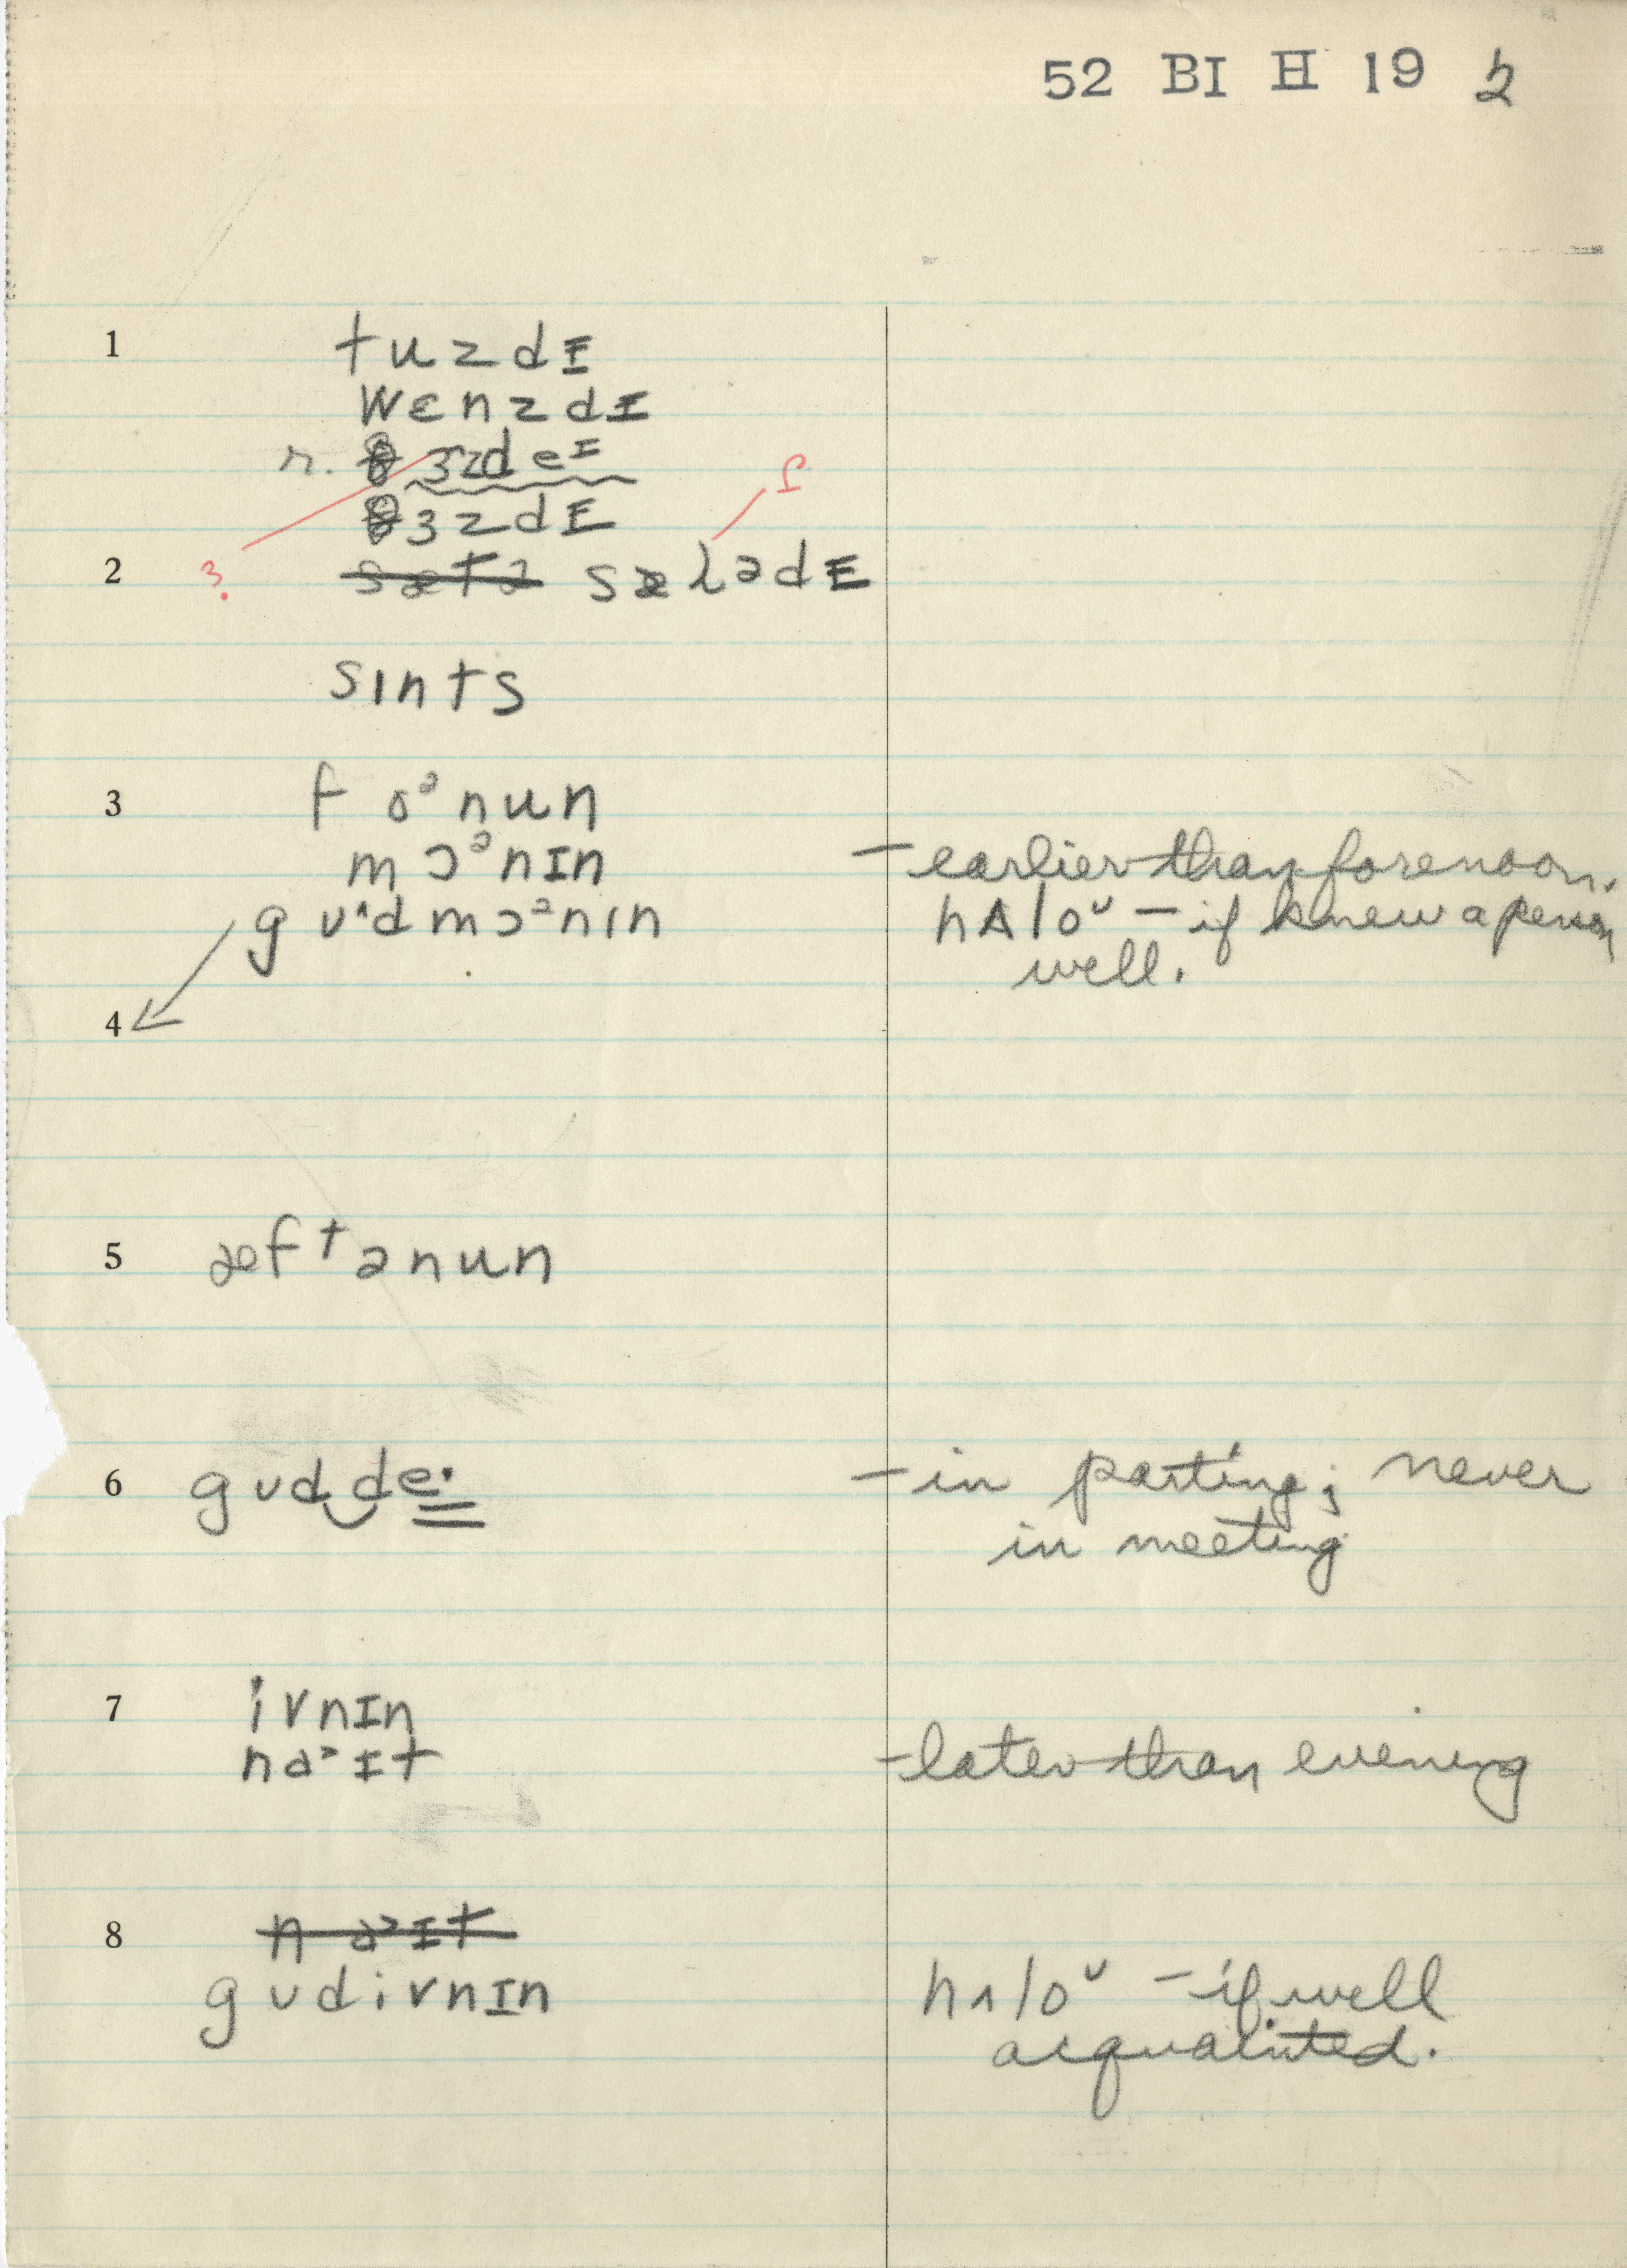 52 BI H 19 2
1 tuzdɪ
wɛnzdɪ
r. θɜzdeᴵ
θɜzdɪ
ʃ
2 ? s̶æ̶t̶ə̶ sæɾədɪ
sɪnts
3 foᵊnun
mɔᵊnɪn – earlier than forenoon.
gʊ^dmɔᵊnɪn hʌloᶸ – if knew a person
well.
4
5 æftənun
6 gʊd‿de· – in parting; never
in meeting
7 ivnɪn
naᵊɪt – later than evening
8 n̶a̶ᵊ̶ɪ̶t̶
gʊdivnɪn hʌloᶸ – if well
acquainted.